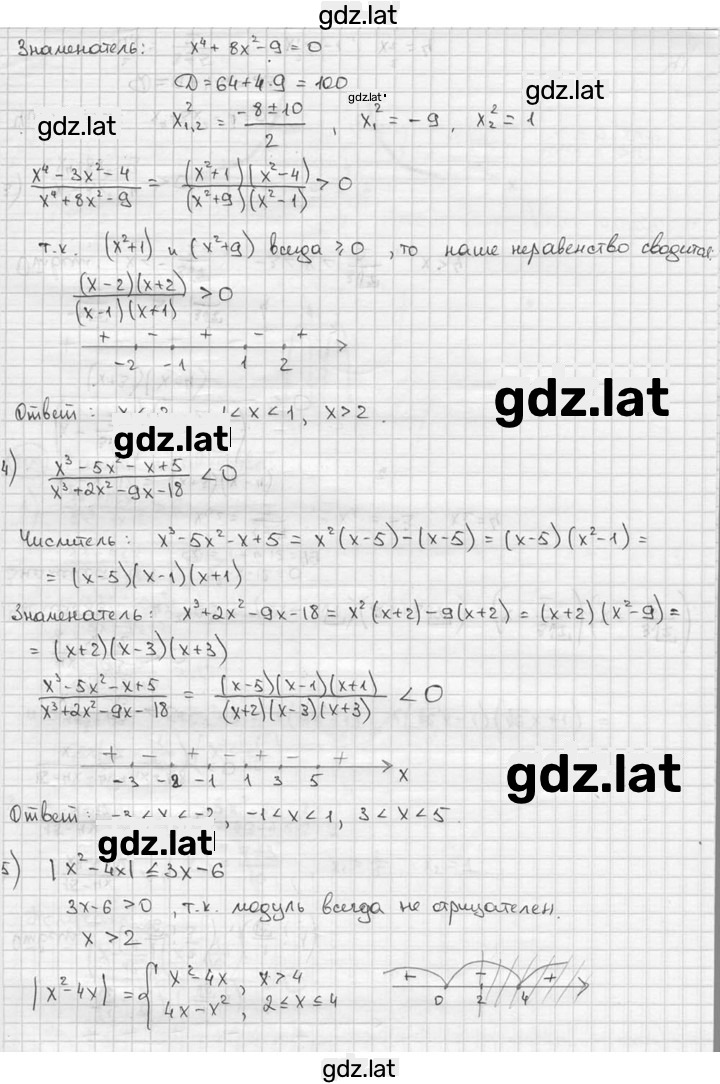 gdz.lat
Знаменатель: x⁴ + 8x² - 9 = 0
D = 64 + 4·9 = 100
gdz.lat
gdz.lat
gdz.lat
x²₁,₂ = (-8 ± 10)/2 , x₁² = -9 , x₂² = 1
(x⁴ - 3x² - 4)/(x⁴ + 8x² - 9) = (x²+1)(x²-4)/(x²+9)(x²-1) > 0
т.к. (x²+1) и (x²+9) всегда ≥ 0 , то наше неравенство сводится:
(x-2)(x+2)/(x-1)(x+1) > 0
+ - + - +
-2 -1 1 2
gdz.lat
Ответ : < x < 1, x > 2 .
gdz.lat
4) (x³ - 5x² - x + 5)/(x³ + 2x² - 9x - 18) < 0
Числитель: x³ - 5x² - x + 5 = x²(x-5) - (x-5) = (x-5)(x²-1) =
= (x-5)(x-1)(x+1)
Знаменатель: x³+2x²-9x-18 = x²(x+2) - 9(x+2) = (x+2)(x²-9) =
= (x+2)(x-3)(x+3)
(x³ - 5x² - x + 5)/(x³ + 2x² - 9x - 18) = (x-5)(x-1)(x+1)/(x+2)(x-3)(x+3) < 0
+ - + - + - +
-3 -2 -1 1 3 5 x
gdz.lat
Ответ: , -1 < x < 1, 3 < x < 5.
gdz.lat
5) |x² - 4x| ≤ 3x - 6
3x-6 > 0 , т.к. модуль всегда не отрицателен.
x > 2
|x² - 4x| = { x² - 4x , x > 4
4x - x² , 2 ≤ x ≤ 4
+ - +
0 2 4
gdz.lat